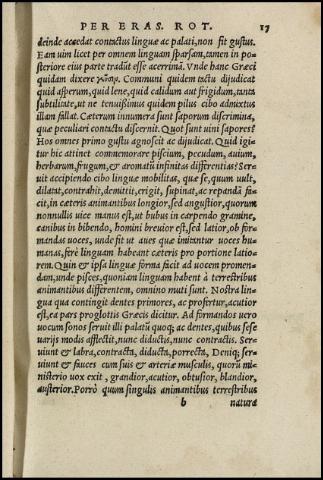 PER ERAS. ROT. 17
deinde accedat contactus linguæ ac palati, non fit gustus.
Eam uim licet per omnem linguam sparsam, tamen in po-
steriore eius parte tradūt esse acerrimā. Vnde hanc Græci
quidam dixere Communi quidem tactu dijudicat
quid asperum, quid lene, quid calidum aut frigidum, tanta
subtilitate, ut ne tenuißimus quidem pilus cibo admixtus
illam fallat. Cæterum innumera sunt saporum discrimina,
quæ peculiari contactu discernit. Quot sunt uini sapores?
Hos omnes primo gustu agnoscit ac dijudicat. Quid igi
tur hic attinet commemorare piscium, pecudum, auium,
herbarum, frugum, & aromatū infinitas differentias? Ser
uit accipiendo cibo linguæ mobilitas, quæ se, quum uult,
dilatat, contrahit, demittit, erigit, supinat, ac repandā fa-
cit, in cæteris animantibus longior, sed angustior, quorum
nonnullis uice manus est, ut bubus in carpendo gramine,
canibus in bibendo, homini breuior est, sed latior, ob for-
mandas uoces, unde fit ut aues quæ imitantur uoces hu-
manas, ferè linguam habeant cæteris pro portione latio-
rem. Quin & ipsa linguæ forma facit ad uocem promen-
dam, unde pisces, quoniam linguam habent à terrestribus
animantibus differentem, omnino muti sunt. Nostra lin-
gua qua contingit dentes primores, ac profertur, acutior
est, ea pars proglottis Græcis dicitur. Ad formandos uero
uocum sonos seruit illi palatū quoq; ac dentes, quibus sese
uarijs modis afflectit, nunc diductis, nunc contractis. Ser-
uiunt & labra, contracta, diducta, porrecta, Deniq; ser-
uiunt & fauces cum suis & arteriæ musculis, quorū mi-
nisterio uox exit, grandior, acutior, obtusior, blandior,
austerior. Porrò quum singulis animantibus terrestribus
b natura